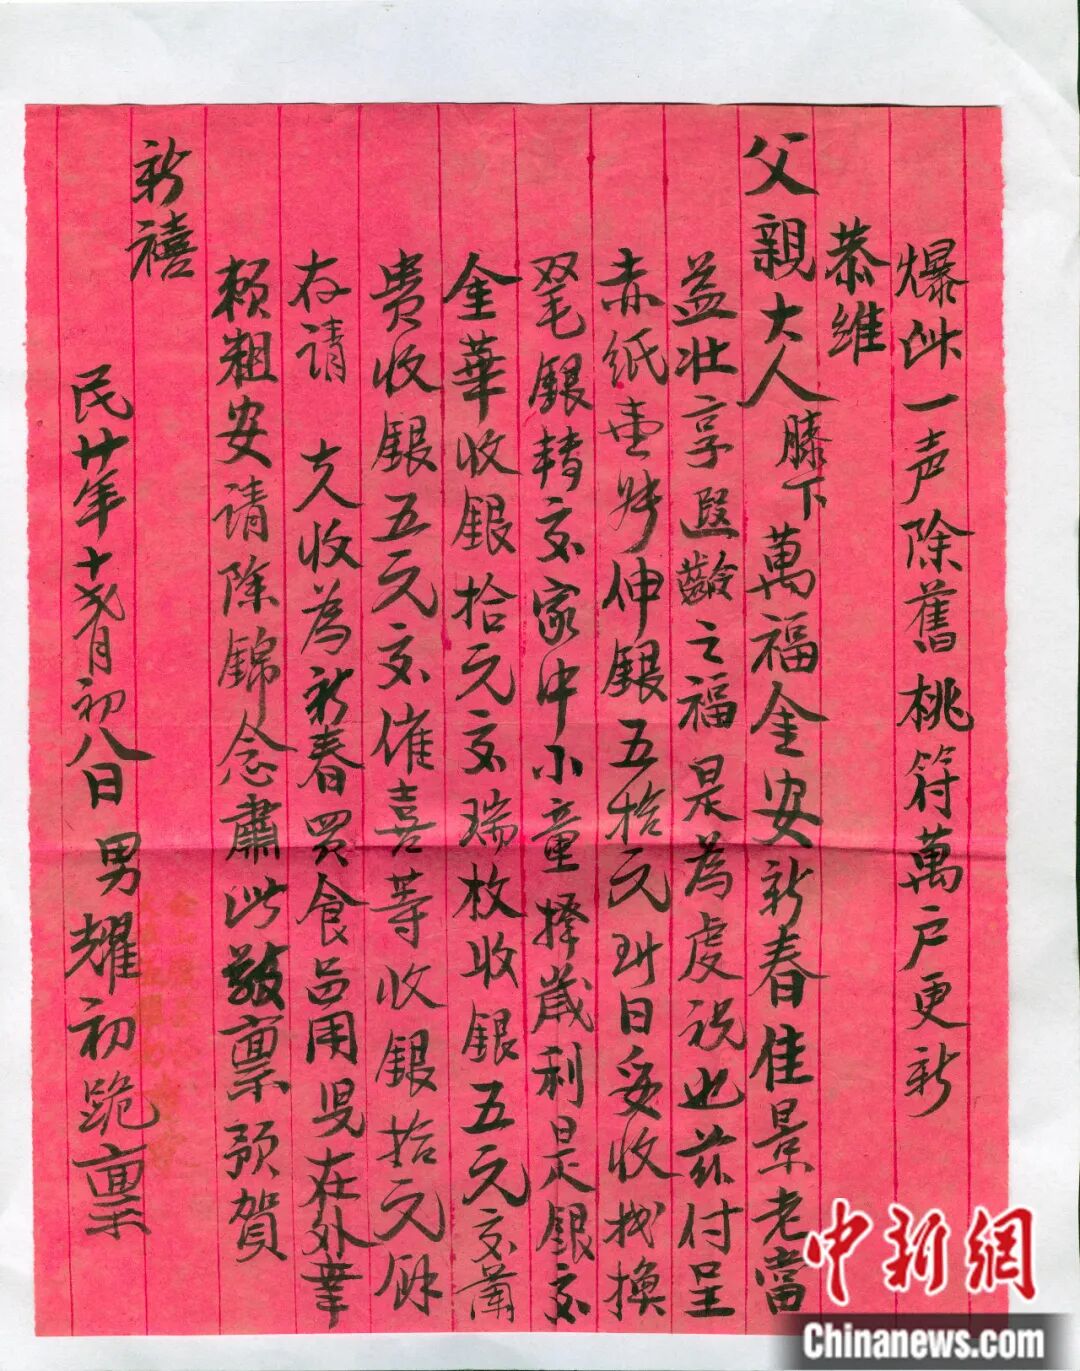 爆竹一声除舊桃符萬户更新
恭维
父親大人膝下萬福金安新春佳景老當
益壯享遐齡之福是為虔祝也茲付呈
赤紙壹紙伸銀五拾元到日妥收找換
双毛銀轉交家中小童擇歲利是銀交
金華收銀拾元交瑞枚收銀五元交蘭
贵收銀五元交催喜等收銀拾元餘
存請 大人收為新春買食品用兒在外幸
賴粗安請除錦念肅此敬禀预賀
新禧
民廿年十弍月初八日男耀初跪禀
中新網
Chinanews.com